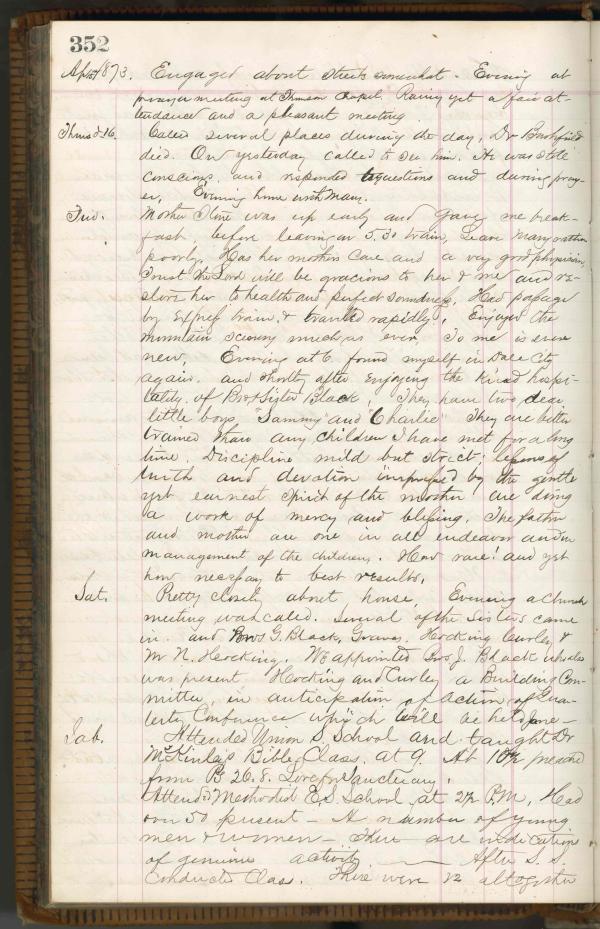 352
Apr 1873. Engaged about streets somewhat. Evening at
prayer meeting at Chapel. Rainy yet a fair at-
tendance and a pleasant meeting
Thursd 16. Called several places during the day. Dr
died. On yesterday called to see him. He was still
conscious and responded to questions and during pray-
er. Evening home with Mary.
Frid. Mother was up early and gave me break-
fast, before leaving on 5.30 train, Leave Mary rather
poorly. Has her mothers care and a very good physician,
Trust the Lord will be gracious to her & me and re-
store her to health and perfect soundness. Had passage
by express train & traveled rapidly. Enjoyed the
mountain scenery much as ever. To me is ever
new. Evening at 6 found myself in Dale City
again. and shortly after enjoying the kind hospi-
tality of Bro & Sister Black. They have two dear
little boys "Sammy" and "Charlie" They are better
trained than any children I have met for a long
time. Discipline mild but strict; lessons of
truth and devotion impressed by the gentle
yet earnest spirit of the mother are doing
a work of mercy and blessing. The father
and mother are one in all endeavor and in
management of the children. How rare! and yet
how necessary to best results.
Sat. Pretty closely about house. Evening a Church
meeting was called. Several of the Sisters came
in and Bros G. Black, Graves, Hocking Curley &
Mr N. Hocking. We appointed Bro J. Black who also
was present Hocking and Curley a Building Com-
mittee, in anticipation of action of Quar-
terly Conference which will be held June –
Sab. Attended Union S. School and taught Dr
McKinlay's Bible Class. at 9. At 10½ preached
from Ps 26.8. Love for Sanctuary.
Attended Methodist E. S. School at 2½ P.M. Had
over 50 present – A number of young
men & women – There are indications
of genuine activity. — After S. S.
Conducted Class. There were 12 altogether